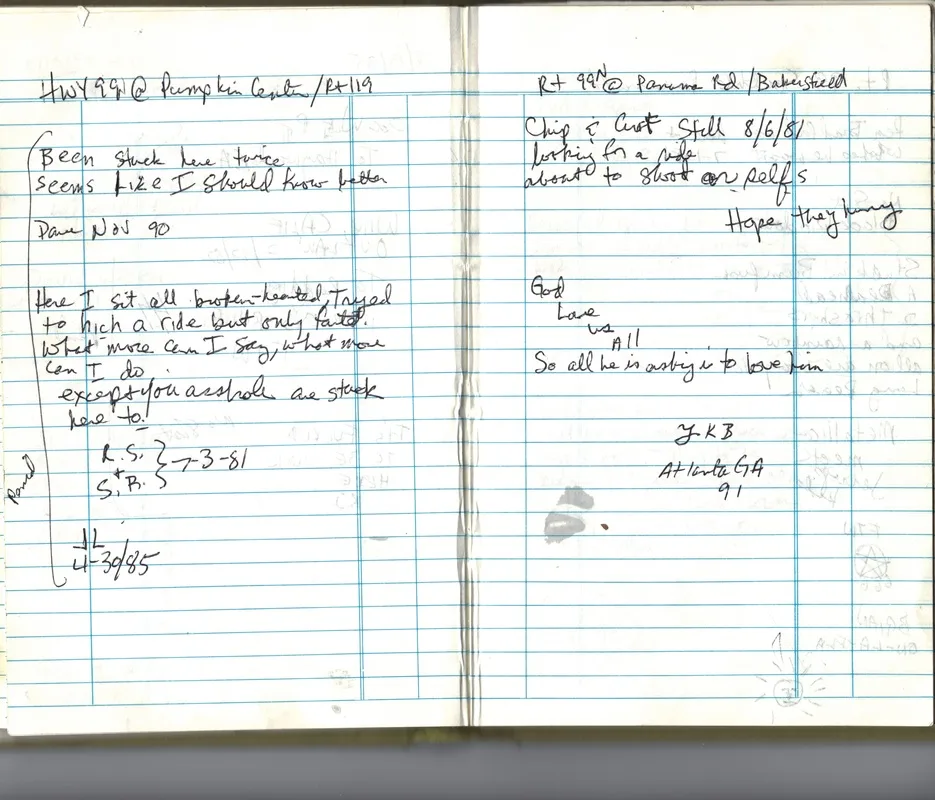 HWY 99N @ Pumpkin Center/Rt 119
Been stuck here twice
seems like I should know better
Dave Nov 90
Here I sit all broken-hearted, Tryed
to hich a ride but only farted.
What more can I say, what more
can I do
except you asshole are stuck
here to!
R.S.
+
S.B.
7-3-81
Paved
JL
4-30/85
Rt 99N @ Panama Rd/Bakersfield
Chip & Curt Still 8/6/81
looking for a ride
about to shoot selfs
Hope they hurry
God
Love
us
All
So all he is asking is to love him
JKB
Atlanta GA
91